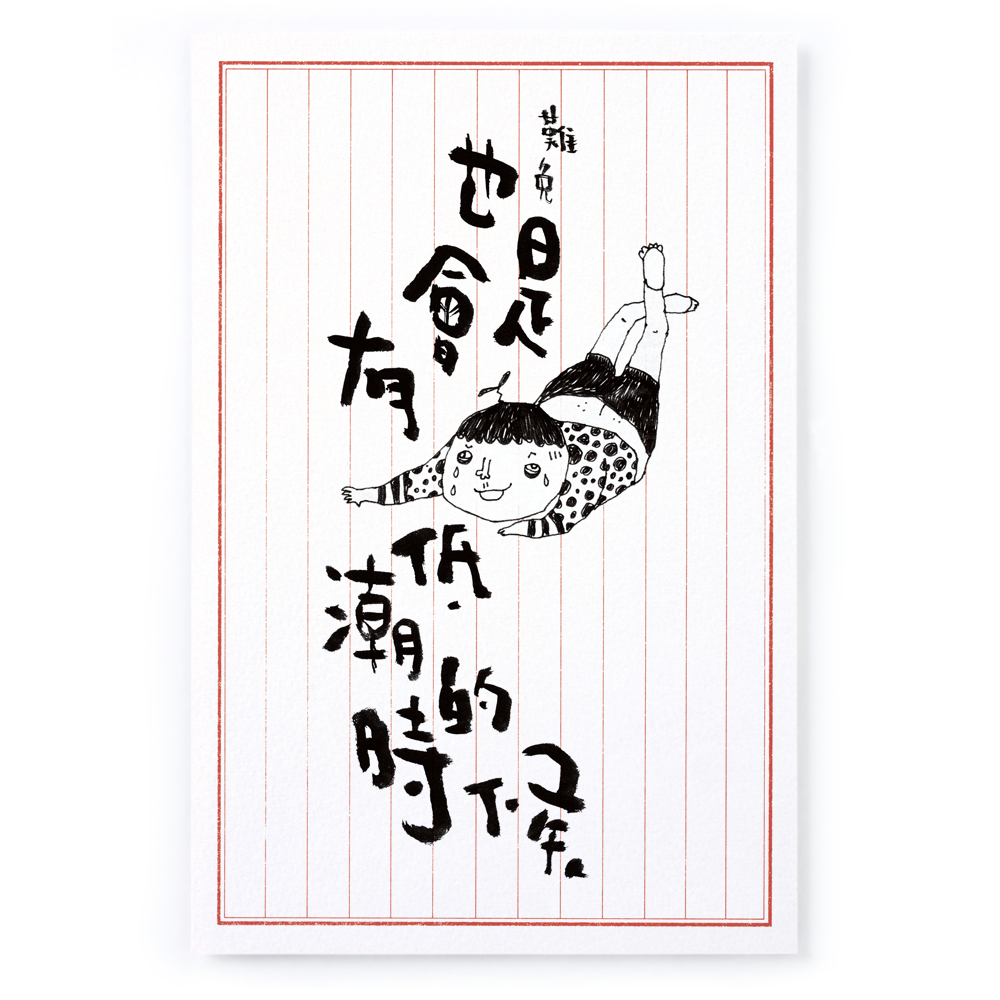 難免是
也會有
低潮的時候。